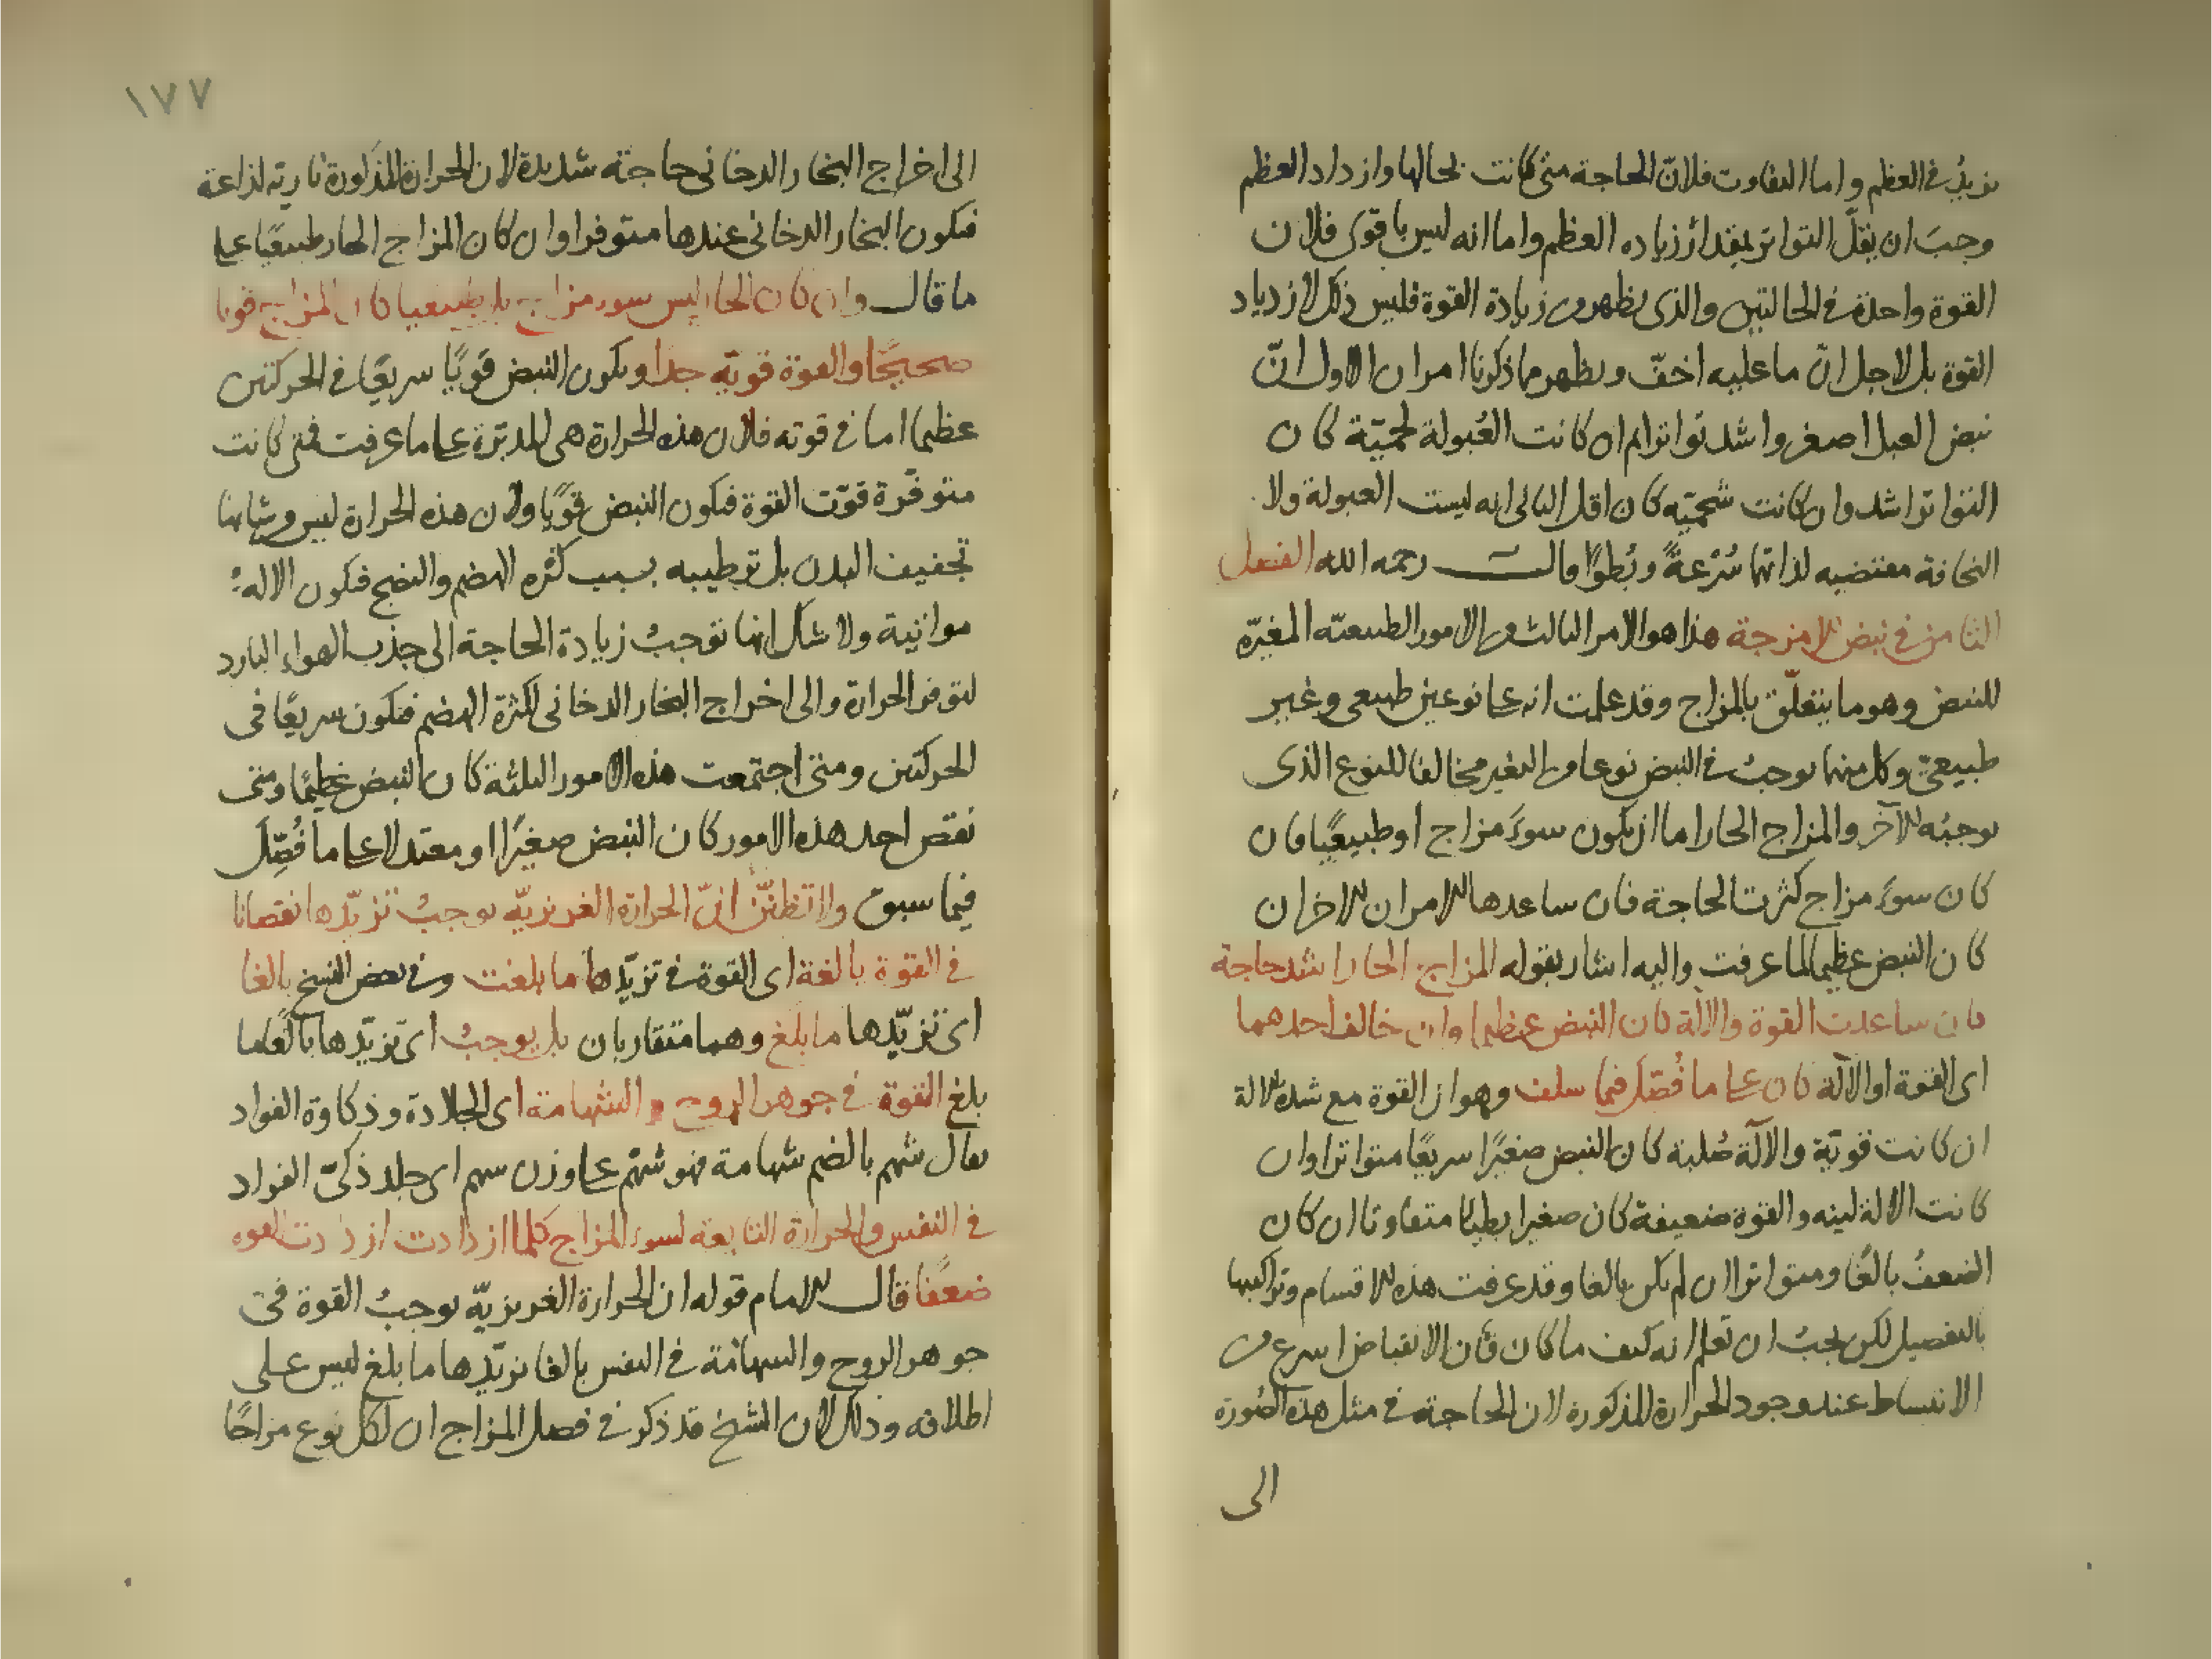 يزيد في العظم واما التفاوت فلانّ الحاجة متى كانت بحالها وازداد العظم
وجبَ ان يقلّ التواتر بمقدار زياده العظم واما انه ليس باقوى فلان
القوة واحدة في الحالتين والذى يظهر من زيادة القوة فليس ذلك لازدياد
القوة بل لاجل انّ ما عليه اخفّ ويظهر مما ذكرنا امران الاول انّ
نبض العبل اصغر واشد تواترا ثم ان كانت العُبولة لحميّة كان
التواتر اشد وان كانت شحميّه كان اقل الثانى انه ليست العبولة ولا
النحافة مقتضيه لذاتها سُرْعةً وبُطوًا قالــــ رحمه الله الفصل
الثامن في نبض الامزجة هذا هو الامر الثالث من الامور الطبيعيّه المغيّره
للنبض وهو ما يتعلّق بالمزاج وقد علمت انه على نوعين طبيعى وغير
طبيعىّ وكل منهما يوجبُ في النبض نوعا من التغير مخالفا للنوع الذى
يوجبُه الآخر والمزاج الحار اما ان يكون سوءَ مزاج او طبيعيًا فان
كان سوءَ مزاج كثرت الحاجة فان ساعدها الامران الاخران
كان النبض عظيما لما عرفت واليه اشار بقوله المزاج الحار اشد حاجة
فان ساعدت القوة والآلة كان النبض عظيما وان خالف احدهما
اى القوة او الآلة كان على ما فُصّل فيما سلف وهو ان القوة مع شدة الالة
ان كانت قويّة والآلة صُلبة كان النبض صغيرًا سريعًا متواترا وان
كانت الالة لينه والقوة ضعيفة كان صغيرا بطيئا متفاوتا ان كان
الضعفُ بالغًا ومتواترا ان لم يكن بالغا وقد عرفت هذه الاقسام وتراكيبها
بالتفصيل لكن يجبُ ان تعلم انه كيف ما كان فان الانقباض اسرع من
الانبساط عند وجود الحرارة المذكورة لان الحاجة في مثل هذه الصُورة
الى
١٧٧
الى اخراج البخار الدخانى حاجة شديدة لان الحرارة المذكورة ناريّه لذاعة
فيكون البخار الدخانى عندها متوفرا وان كان المزاج الحار طبيعيًا على
ما قالــ وان كان الحار ليس سوء مزاج بل طبيعيا كان المزاج قويا
صحيحًا والقوة قويّه جدا ويكون النبض قويًا سريعًا في الحركتين
عظيما اما في قوته فلان هذه الحرارة هى المدبّرة على ما عرفت فمتى كانت
متوفّرة قوّت القوة فيكون النبض قويًا ولان هذه الحرارة ليس من شانها
تجفيف البدن بل ترطيبه بسبب كثره الهضم والنضج فيكون الالهُ
مواتية ولا شك انها توجبُ زيادة الحاجة الى جذب الهواء البارد
لتوفر الحرارة والى اخراج البخار الدخانى لكثرة الهضم فيكون سريعًا في
الحركتين ومتى اجتمعت هذه الامور الثلثة كان النبض عظيمًا ومتى
نقص احد هذه الامور كان النبض صغيرًا او معتدلا على ما فُصِّلَ
فيما سبق ولا تظنّنّ انّ الحرارة الغريزيّه يوجبُ تزيّدها نقصانا
في القوة بالغة اى القوة في تزيّدها ما بلغت وفي بعض النسخ بالغا
اى تزيّدها ما بلغ وهما متقاربان بل يوجبُ اى تزيّدها بالغًا ما
بلغ القوة في جوهر الروح والشهامة اى الجلادة وذكاوة الفواد
يقال شهم بالضم شهامة فهو شهْم على وزن سهم اى جلد ذكىّ الفواد
في النفس والحرارة التابعة لسوء المزاج كلما ازدادت ازدادت القوه
ضعفًا قالــ الامام قوله ان الحرارة الغريزيّه يوجبُ القوة في
جوهر الروح والشهامة في النفس بالغا تزيّدها ما بلغ ليس على
اطلاقه وذلك لان الشيخ قد ذكر في فصل المزاج ان لكل نوع مزاجًا